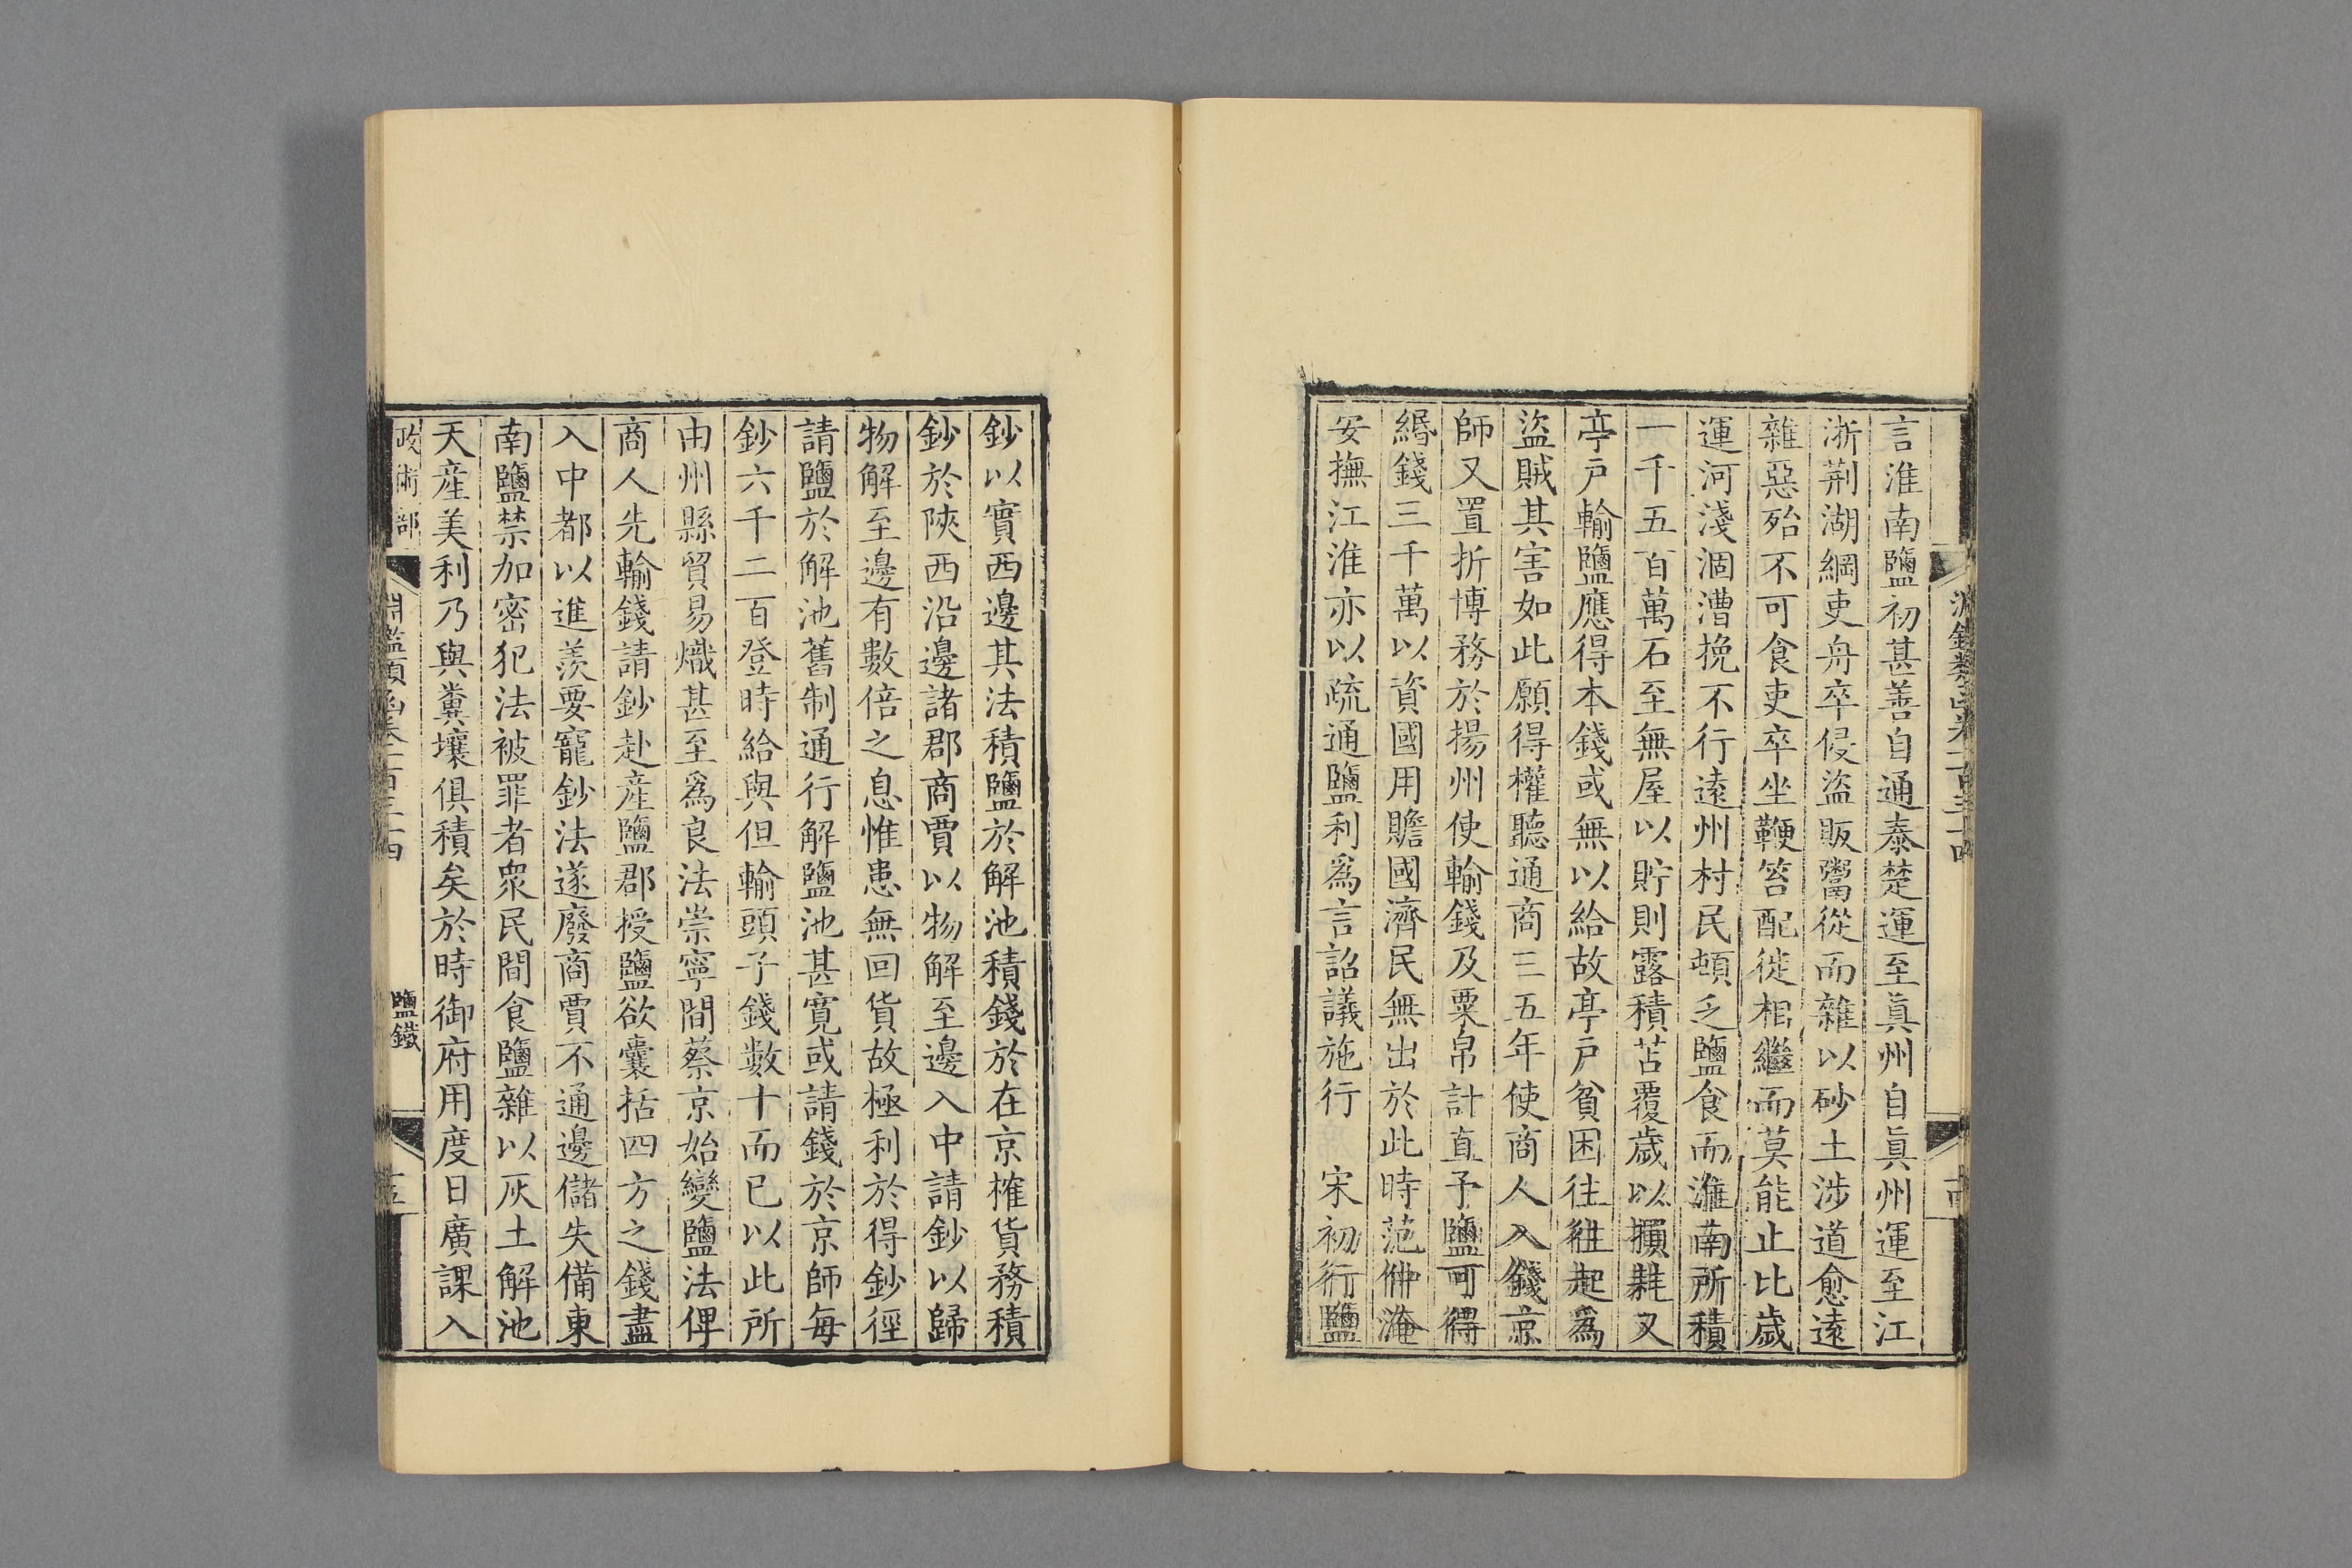 言淮南鹽初甚善自通泰楚運至眞州自眞州運至江
浙荆湖綱吏舟卒侵盜販鬻從而雜以砂土涉道愈遠
雜惡殆不可食吏卒坐鞭笞配徙相繼而莫能止比歲
運河淺涸漕挽不行遠州村民頓乏鹽食而淮南所積
一千五百萬石至無屋以貯則露積苫覆歲以損耗又
亭戸輸鹽應得本錢或無以給故亭戸貧困往往起爲
盜賊其害如此願得權聽通商三五年使商人入錢京
師又置折博務於揚州使輸錢及粟帛計直予鹽可得
緡錢三千萬以資國用贍國濟民無出於此時范仲淹
安撫江淮亦以疏通鹽利爲言詔議施行　宋初行鹽
鈔以實西邊其法積鹽於解池積錢於在京榷貨務積
鈔於陜西沿邊諸郡商賈以物解至邊入中請鈔以歸
物解至邊有數倍之息惟患無回貨故極利於得鈔徑
請鹽於解池舊制通行解鹽池甚寛或請錢於京師每
鈔六千二百登時給與但輸頭子錢數十而已以此所
由州縣貿易熾甚至爲良法崇寧間蔡京始變鹽法俾
商人先輸錢請鈔赴産鹽郡授鹽欲囊括四方之錢盡
入中都以進羨要寵鈔法遂廢商賈不通邊儲失備東
南鹽禁加密犯法被罪者衆民間食鹽雜以灰土解池
天産美利乃與糞壤俱積矣於時御府用度日廣課入
政術部
淵鑑類函卷一百三十四
鹽鐵